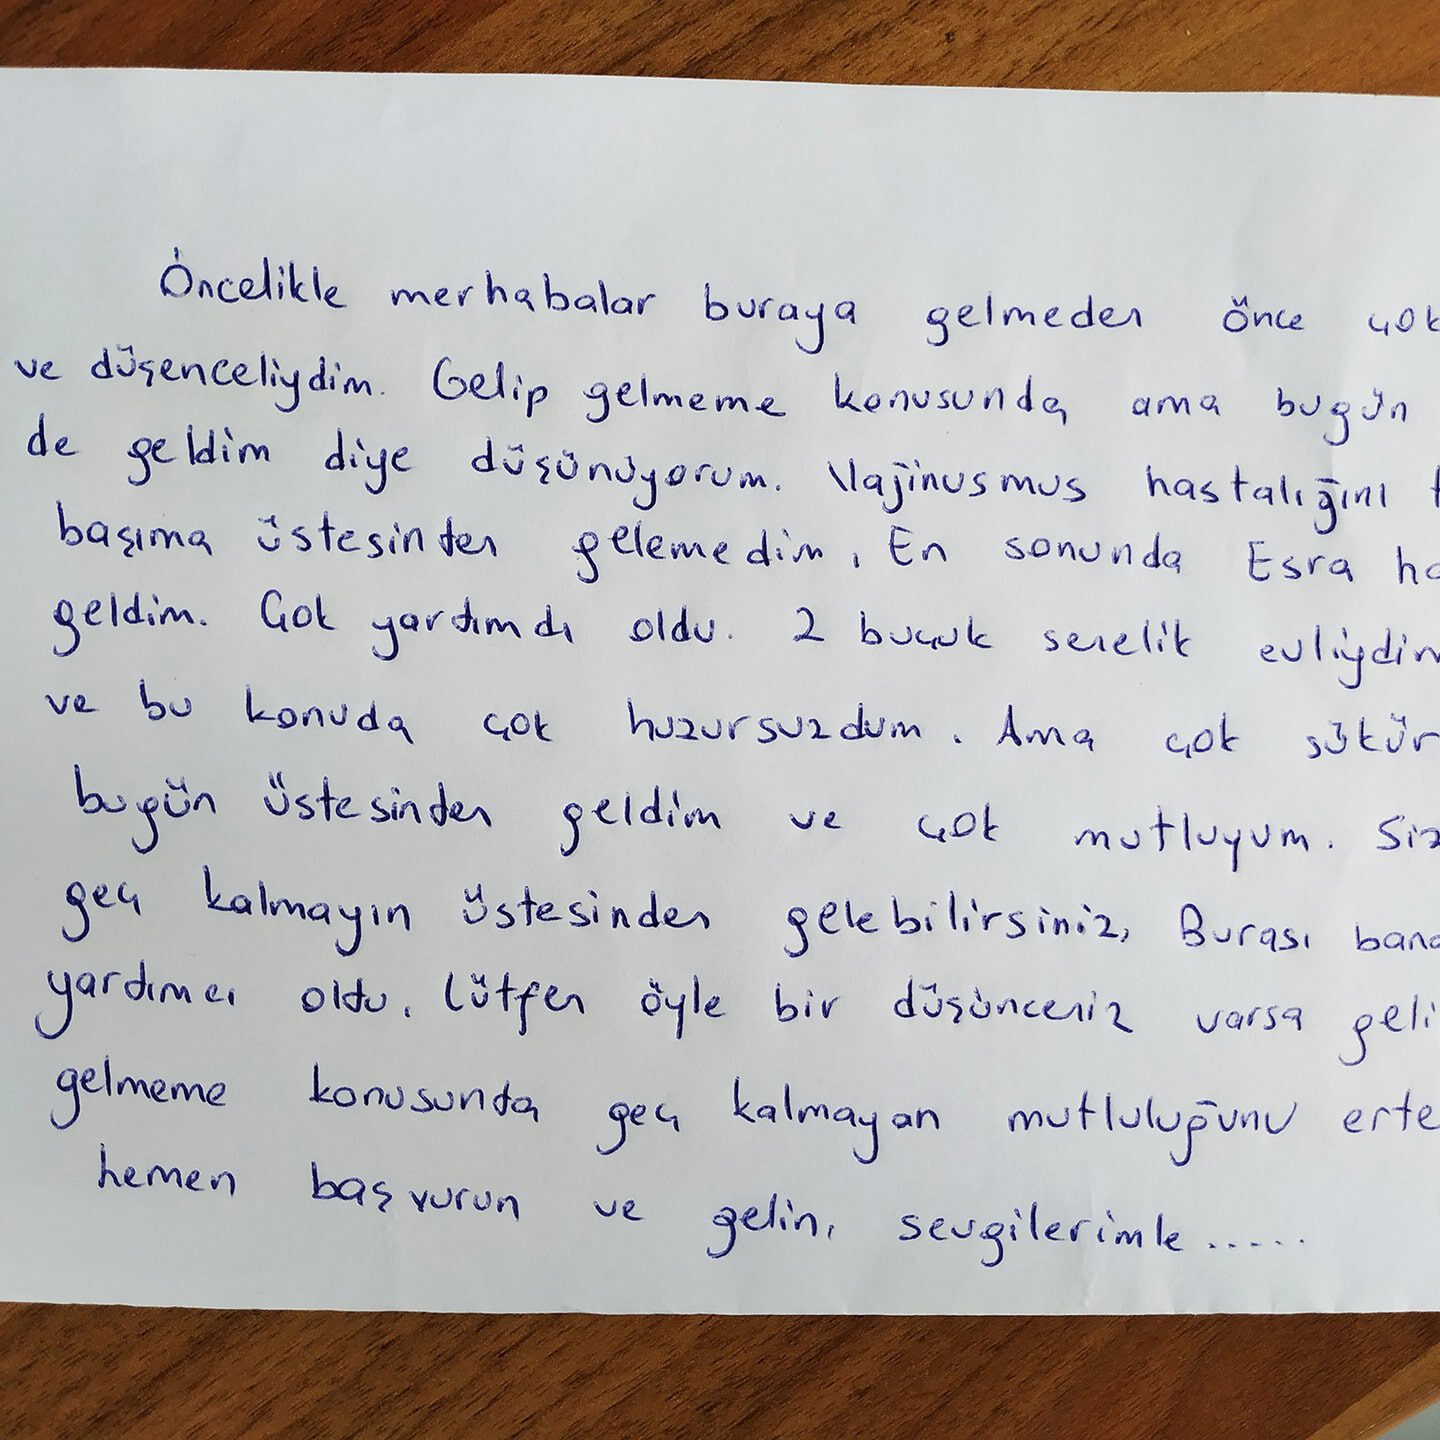 Öncelikle merhabalar buraya gelmeden önce çok
ve düşenceliydim. Gelip gelmeme konusunda ama bugün
de geldim diye düşünüyorum. Vajinusmus hastalığını
başıma üstesinden gelemedim. En sonunda Esra
geldim. Çok yardımdı oldu. 2 buçuk senelik evliydim
ve bu konuda çok huzursuzdum. Ama çok şükür
bugün üstesinden geldim ve çok mutluyum. Siz
geç kalmayın üstesinden gelebilirsiniz, Burası bana
yardımcı oldu. Lütfen öyle bir düşünceniz varsa geli
gelmeme konusunda geç kalmayan mutluluğunu erte
hemen başvurun ve gelin, sevgilerimle.....